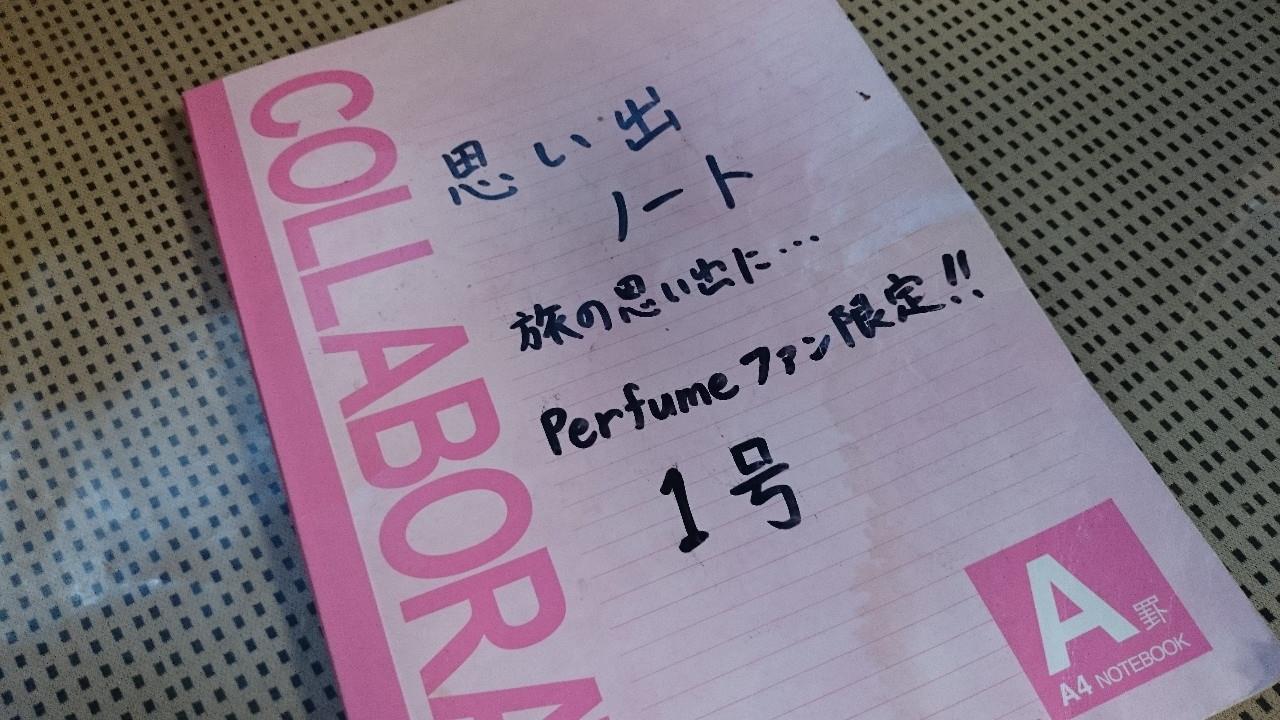 COLLABORA
思い出
ノート
旅の思い出に…
Perfumeファン限定!!
1号
A罫
A4 NOTEBOOK